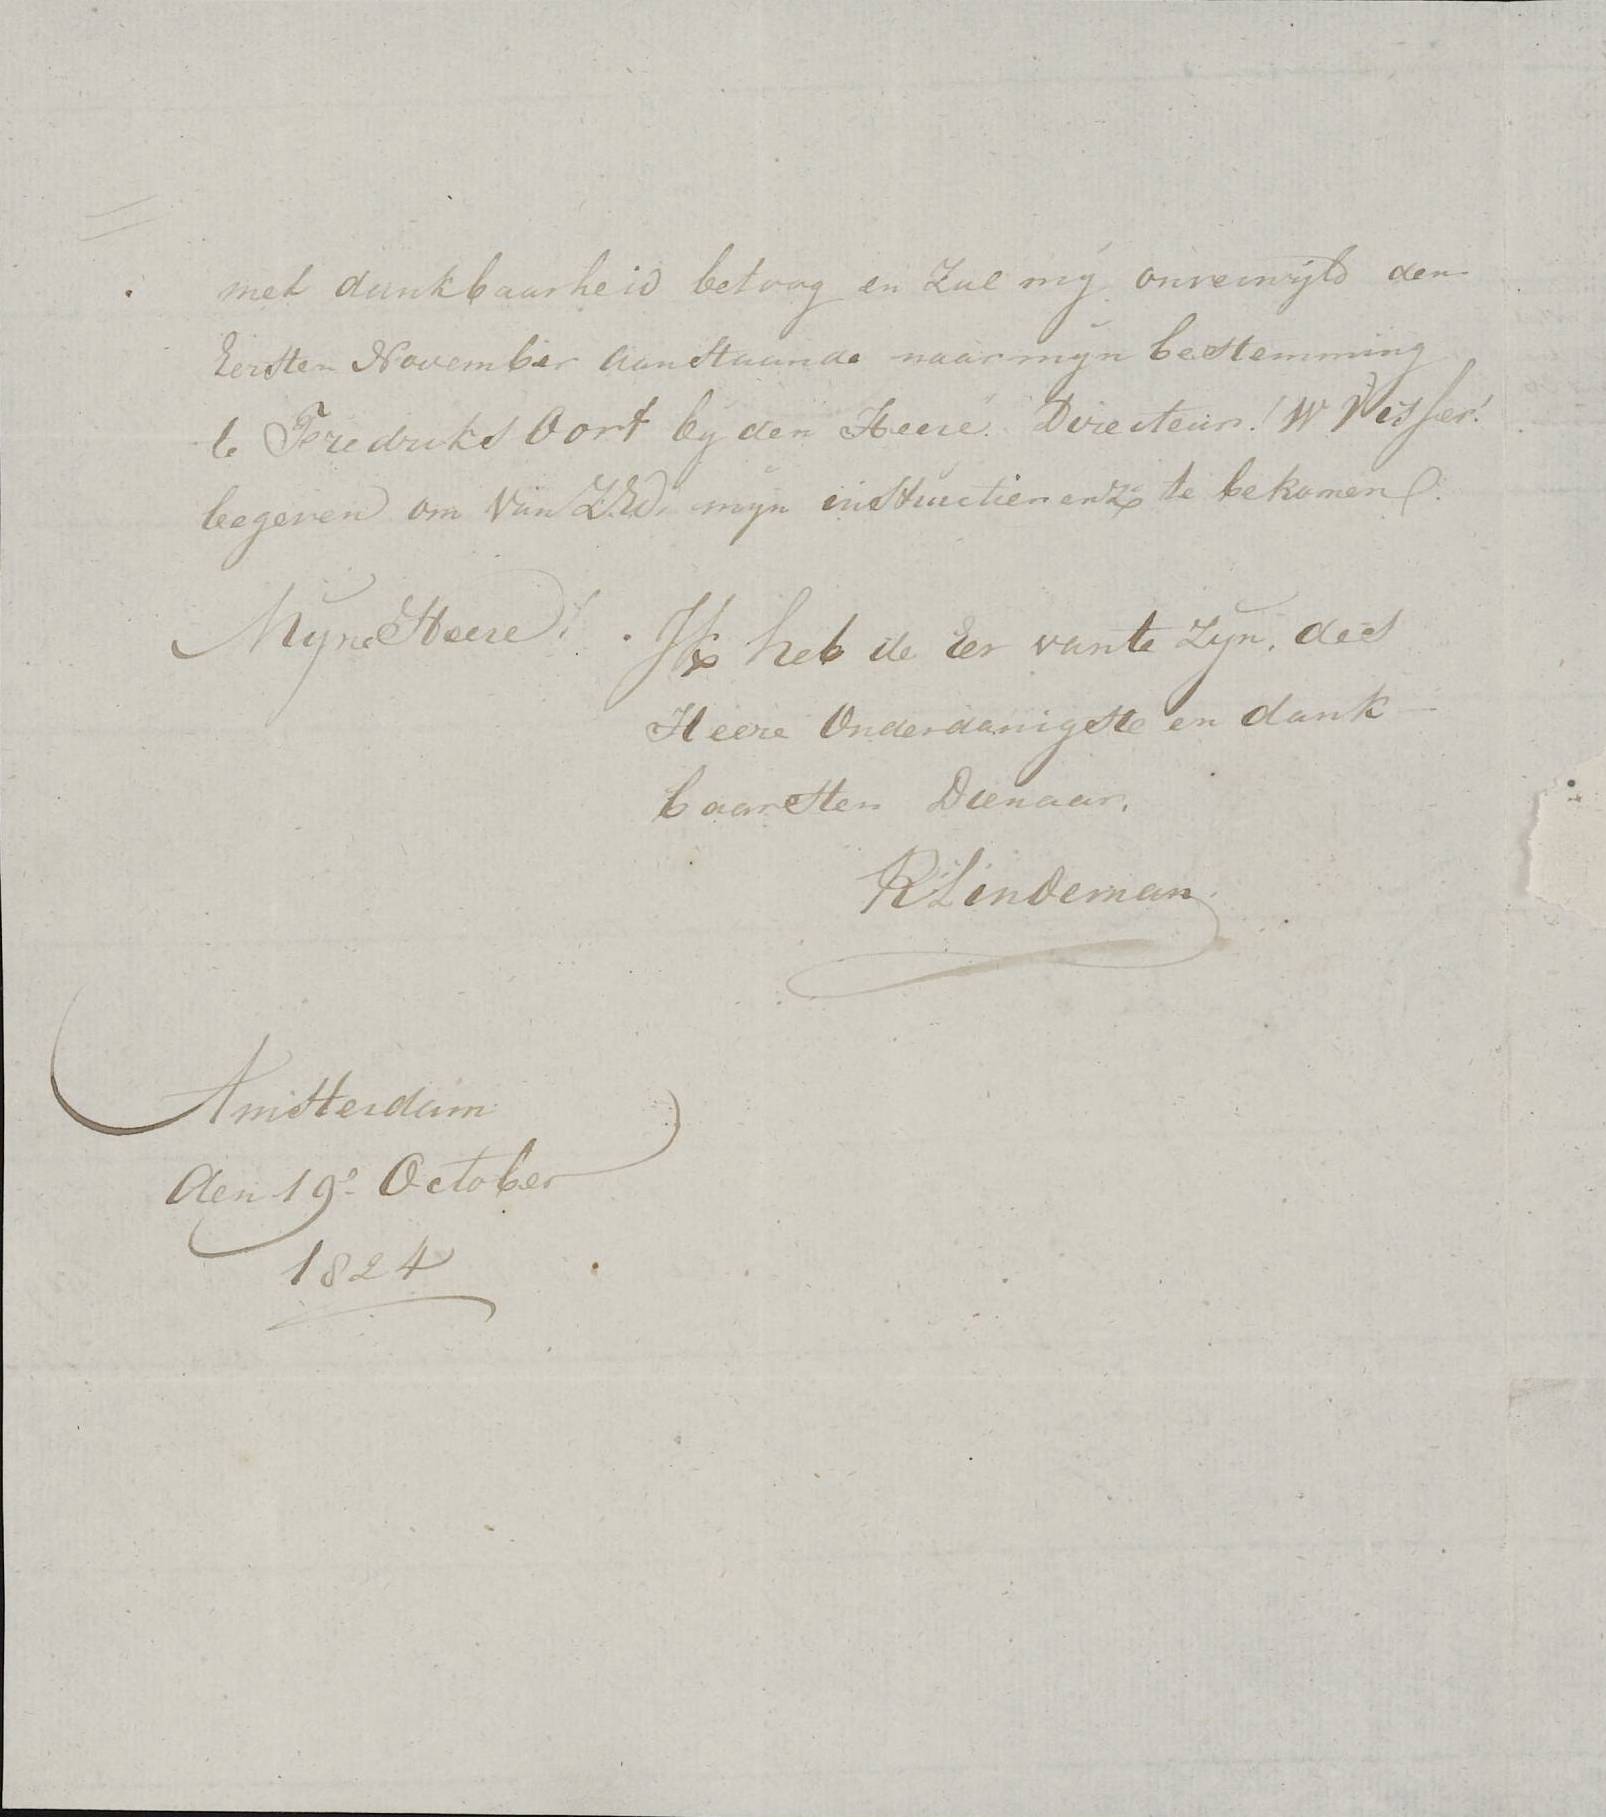 met dankbaarheid betoog en zul mÿ onverwyld den
Eersten November aanstaande naar mÿn bestemming
te Fredriks Oort by den Heere Directeur! W Visser!
begeven om van ZEd. mÿn instructien enz te bekomen.
Mÿne Heere! Ik heb de Eer van te Zÿn, des
Heere Onderdanigste en dank
baarsten Dienaar.
R Lindeman
Amsterdam
den 19e October
1824